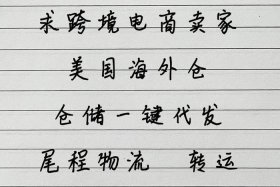 求跨境电商卖家
美国海外仓
仓储一键代发
尾程物流 转运